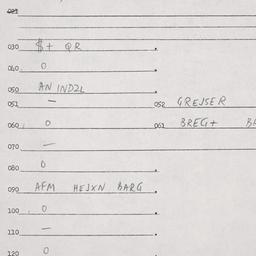 021
030 $+ QR
040 0
050 AN INDZL
051 — 052 GREJSER
060 0 061 BREG+
070 —
080 0
090 AFM HEJXN BARG
100 0
110 —
120 0